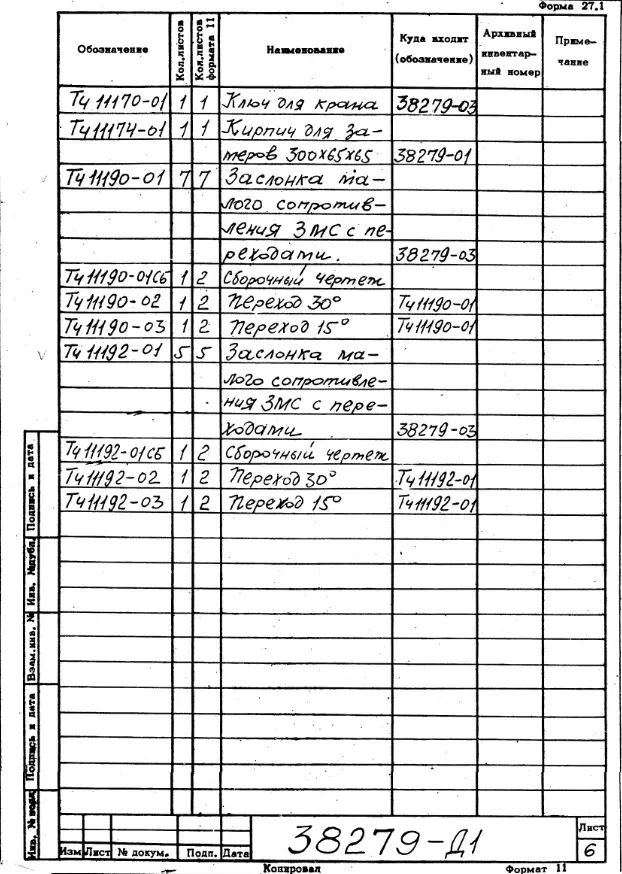 Форма 27.1
Обозначение Кол.листов Кол.листов формата 11 Наименование Куда входит (обозначение) Архивный инвентарный номер Примечание
ТЧ 11170-01 1 1 Ключ для крана 38279-03
ТЧ 11174-01 1 1 Кирпич для за-
меров 300х65х65 38279-01
ТЧ 11190-01 7 7 Заслонка ма-
лого сопротив-
ления ЗМС с пе-
реходами. 38279-03
ТЧ 11190-01СБ 1 2 Сборочный чертеж
ТЧ 11190-02 1 2 Переход 30°  ТЧ 11190-01
ТЧ 11190-03 1 2 Переход 15° ТЧ 11190-01
ТЧ 11192-01 5 5 Заслонка ма-
лого сопротивле-
ния ЗМС с пере-
ходами 38279-03
ТЧ 11192-01СБ 1 2 Сборочный чертеж
ТЧ 11192-02 1 2 Переход 30° ТЧ 11192-01
ТЧ 11192-03 1 2 Переход 15° ТЧ 11192-01
Подпись и дата
Инв. № дубл.
Взам.инв. №
Подпись и дата
Инв. № подл
Изм Лист № докум. Подп. Дата
38279-Д1
Лист
6
Копировал Формат 11